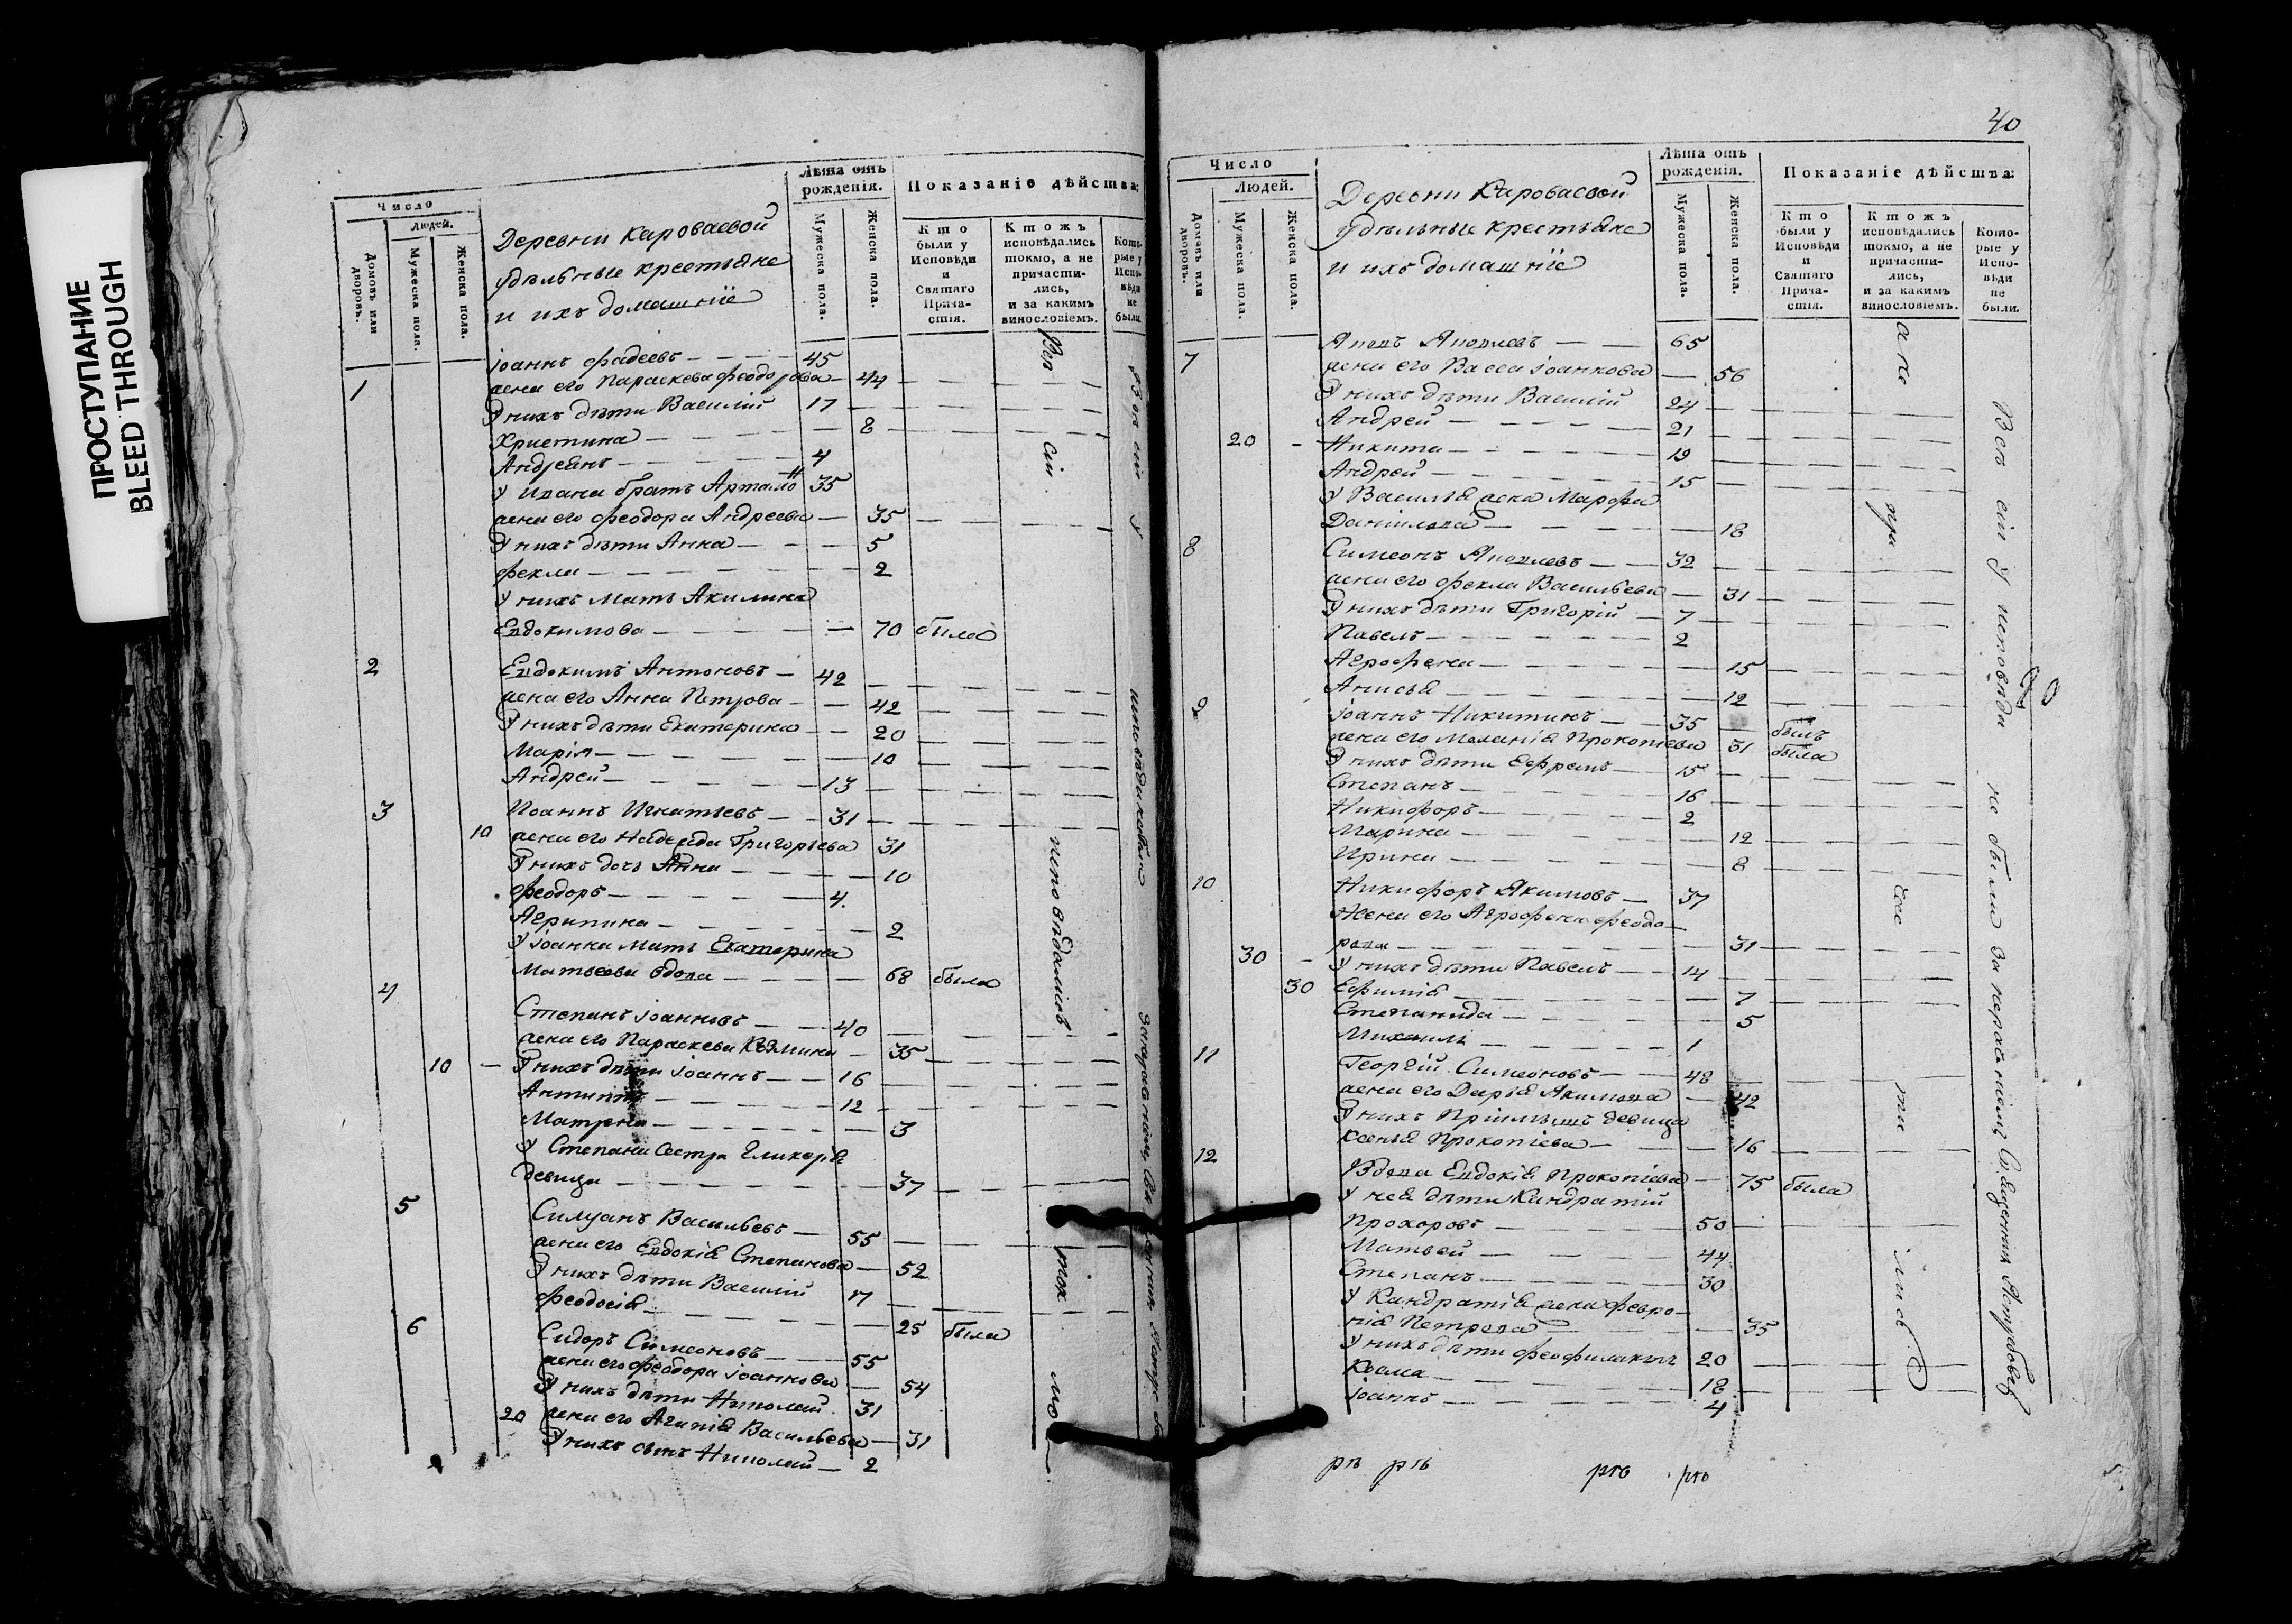 ПРОСТУПАНИЕ
BLEED THROUGH
Число
Людей.
Домовъ или дворовъ.
Мужеска пола.
Женска пола.
Деревни Короваевой
удѣльные крестьяне
и ихъ домашніе
Лѣта отъ рожденія.
Мужеска пола.
Женска пола.
Показаніе дѣйства:
Кто были у Исповѣди и Святаго Причастія.
Ктожъ исповѣдались токмо, а не причастились, и за какимъ винословіемъ.
Которые у Исповѣди не были.
1 іоаннъ Фадеевъ 45
жена его Параскева Феодорова 44
У нихъ дѣти Василій 17
Христина 8
Андреянъ 4
У Ивана братъ Артамонъ 35
жена его Феодора Андреева 35
У нихъ дѣти Анна 5
Фекла 2
У нихъ мать Акилина
Евдокимова 70 была
2 Евдокимъ Антоновъ 42
жена его Анна Петрова 42
У нихъ дѣти Екатерина 20
Марія 10
Андрей 13
3 Иоаннъ Игнатьевъ 31
10 жена его Надежда Григорьева 31
У нихъ дочь Анна 10
Феодоръ 4
Агрипина 2
У іоанна мать Екатерина
Матвеева вдова 68 была
4 Степанъ іоанновъ 40
жена его Параскева Козмина 35
10 У нихъ дѣти іоаннъ 16
Антипъ 12
Матрена 3
У Степана сестра Гликерія
девица 37
5 Силуанъ Васильевъ 55
жена его Евдокія Степанова 52
У нихъ дѣти Василій 17
Феодосія 25 была
6 Сидоръ Симеоновъ 55
жена его Феодора іоаннова 54
У нихъ дѣти Николай 31
20 жена его Агапія Васильева 31
У нихъ сынъ Николай 2
Вси сіи исповѣдались ток мо
40
Число
Людей.
Домовъ или дворовъ.
Мужеска пола.
Женска пола.
Деревни Короваевой
удѣльные крестьяне
и ихъ домашніе
Лѣта отъ рожденія.
Мужеска пола.
Женска пола.
Показаніе дѣйства:
Кто были у Исповѣди и Святаго Причастія.
Ктожъ исповѣдались токмо, а не причастились, и за какимъ винословіемъ.
Которые у Исповѣди не были.
7 Яковъ Яковлевъ 65
жена его Васса іоаннова 56
У нихъ дѣти Василій 24
Андрей 21
20 Никита 19
Андрей 15
У Василья жена Марфа
Даніилова 18
8 Симеонъ Яковлевъ 32
жена его Фекла Васильева 31
У нихъ дѣти Григорій 7
Павелъ 2
Агрофена 15
Анисья 12
9 іоаннъ Никитинъ 35 былъ
жена его Меланія Прокопіева 31 была
У нихъ дѣти Ефремъ 15
Степанъ 16
Никифоръ 2
Марина 12
Ирина 8
10 Никифоръ Якимовъ 37
Жена его Агрофена Феодо
рова 31
30 У нихъ дѣти Павелъ 14
30 Ефимія 7
Степанида 5
Михаилъ 1
11 Георгій Симеоновъ 48
жена его Дарія Акимова 42
У нихъ Пріимышъ девица
Ксенья Прокопіева 16
12 Вдова Евдокія Прокопіева 75 была
У нея дѣти Кандратій
Прохоровъ 50
Матвей 44
Степанъ 30
У Кандратія жена Февро
нія Петрова 35
У нихъ дѣти Феофилактъ 20
Козма 18
іоаннъ 4
а не при час ти лись
Вси сіи у исповѣди не были за нераченіемъ Священникъ